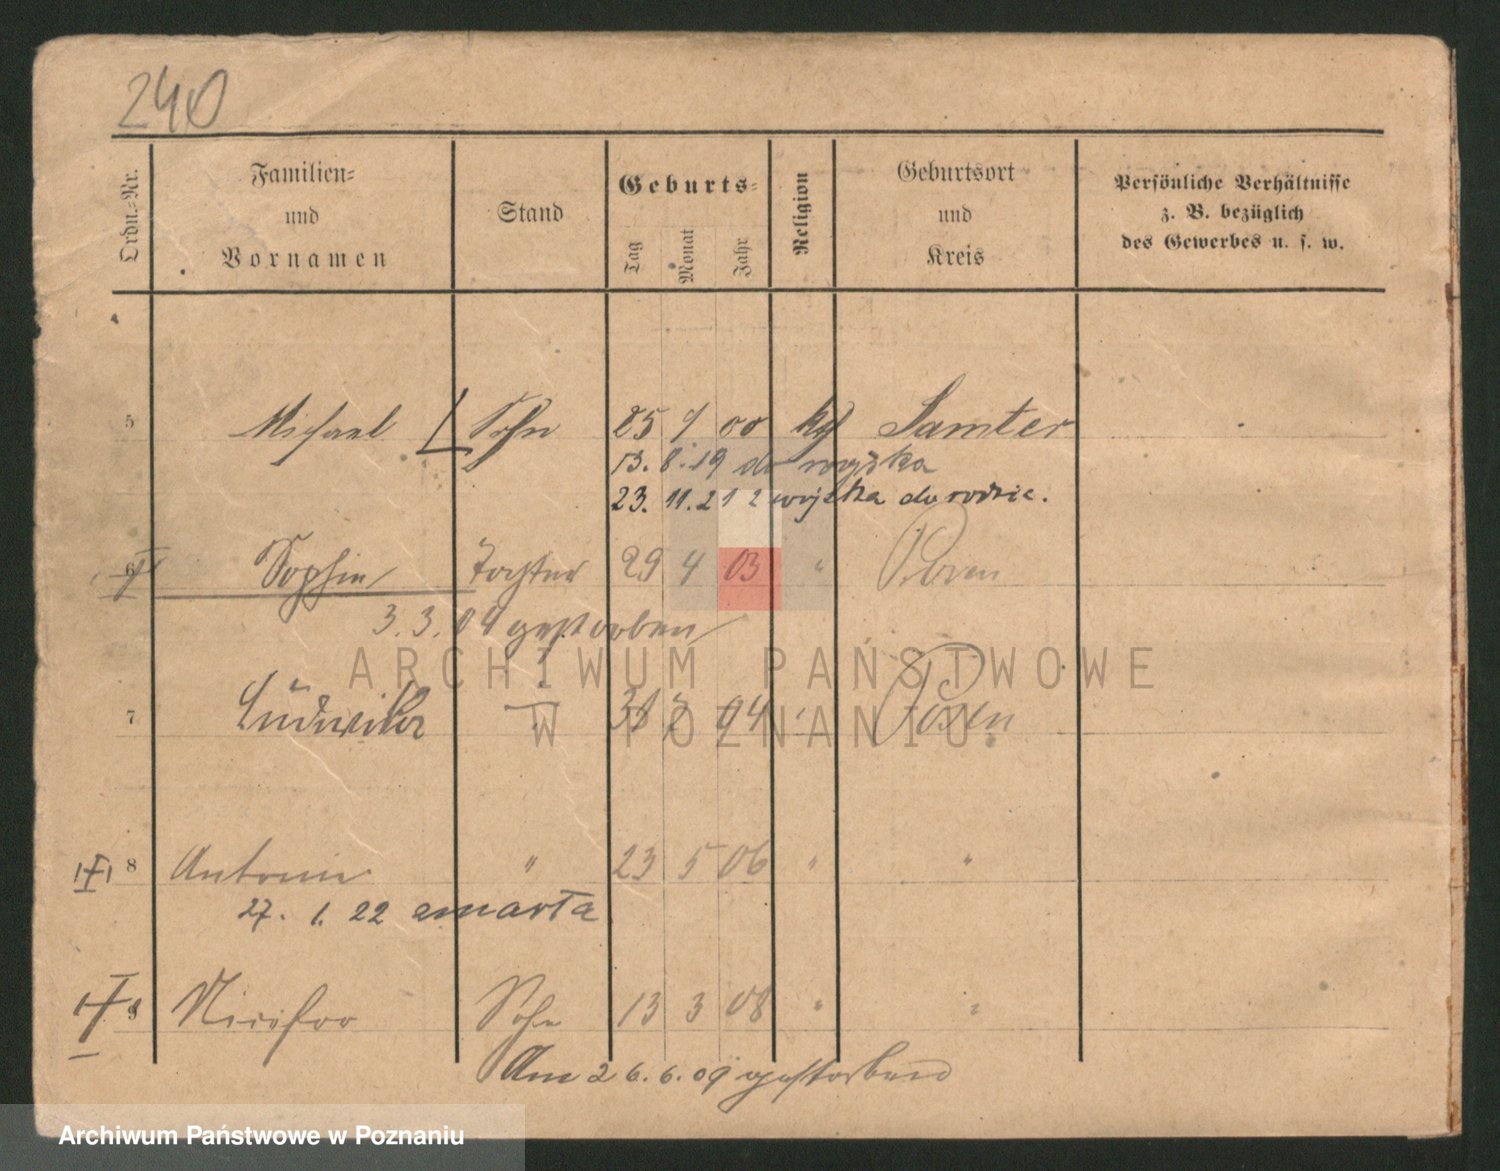 240
Ordn.-Nr.
Familien-
und
Vornamen
Stand
Geburts-
Tag
Monat
Jahr
Religion
Geburtsort
und
Kreis
Persönliche Verhältnisse
z. B. bezüglich
des Gewerbes u. s. w.
5 Michael Sohn 25 9 00 kth Samter
13. 8. 19 do wojska
23. 11. 21 z wojska do rodzic.
6 Sophie Tochter 29 4 03 " Posen
3. 3. 04 gestorben
ARCHIWUM PAŃSTWOWE
W POZNANIU
7 Ludwika 04 " Posen
8 Antonie " 23 5 06 " "
27. 1. 22 zmarła
9 Sohn 13 3 08 " "
Am 26. 6. 09 gestorben
Archiwum Państwowe w Poznaniu